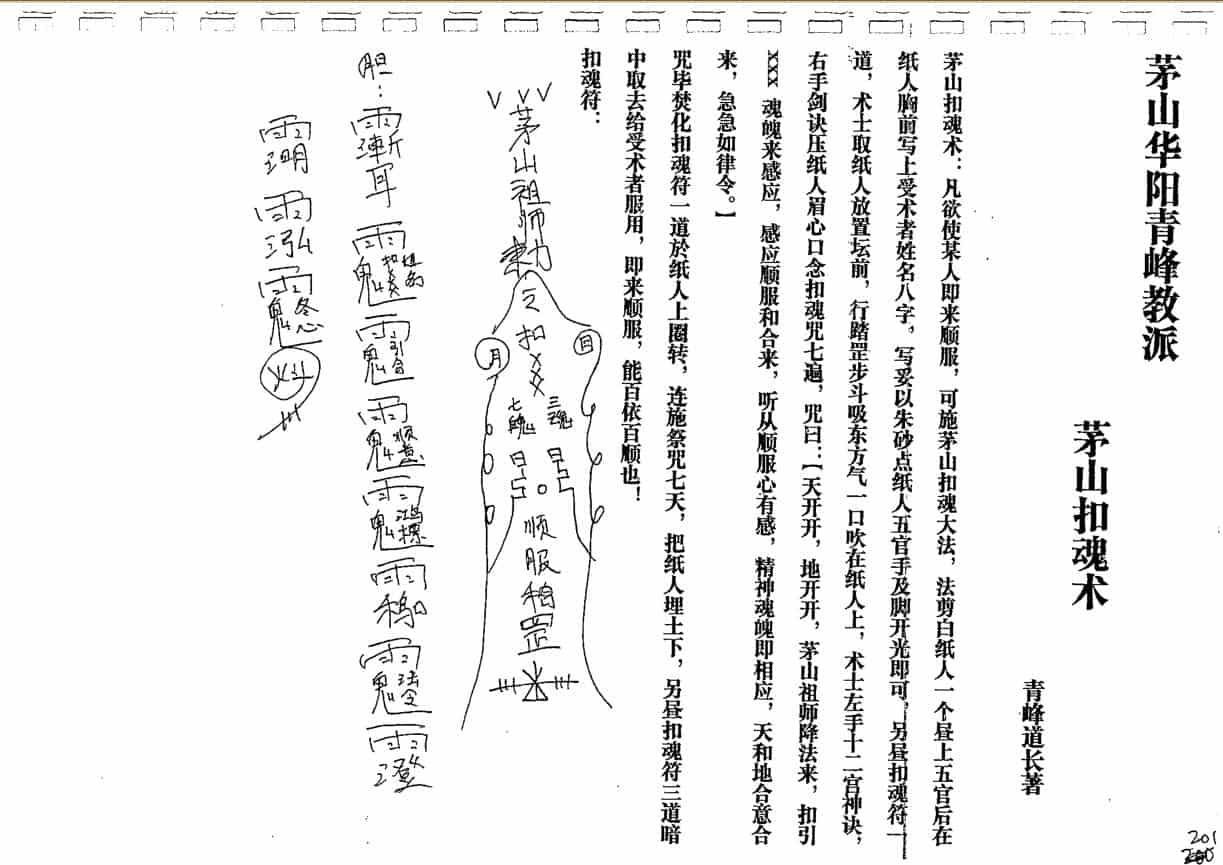 茅山华阳青峰教派
茅山扣魂术
青峰道长著
茅山扣魂术：凡欲使某人即来顺服，可施茅山扣魂大法，法剪白纸人一个昼上五官后在
纸人胸前写上受术者姓名八字，写妥以朱砂点纸人五官手及脚开光即可，另昼扣魂符一
道，术士取纸人放置坛前，行踏罡步斗吸东方气一口吹在纸人上，术士左手十二宫神诀，
右手剑诀压纸人眉心口念扣魂咒七遍，咒曰：【天开开，地开开，茅山祖师降法来，扣引
XXX 魂魄来感应，感应顺服和合来，听从顺服心有感，精神魂魄即相应，天和地合意合
来，急急如律令。】
咒毕焚化扣魂符一道於纸人上圈转，连施祭咒七天，把纸人埋土下，另昼扣魂符三道暗
中取去给受术者服用，即来顺服，能百依百顺也！
扣魂符：
茅山祖师敕令扣XXX
日
月
三魂
七魄
顺服
罡
胆：
201